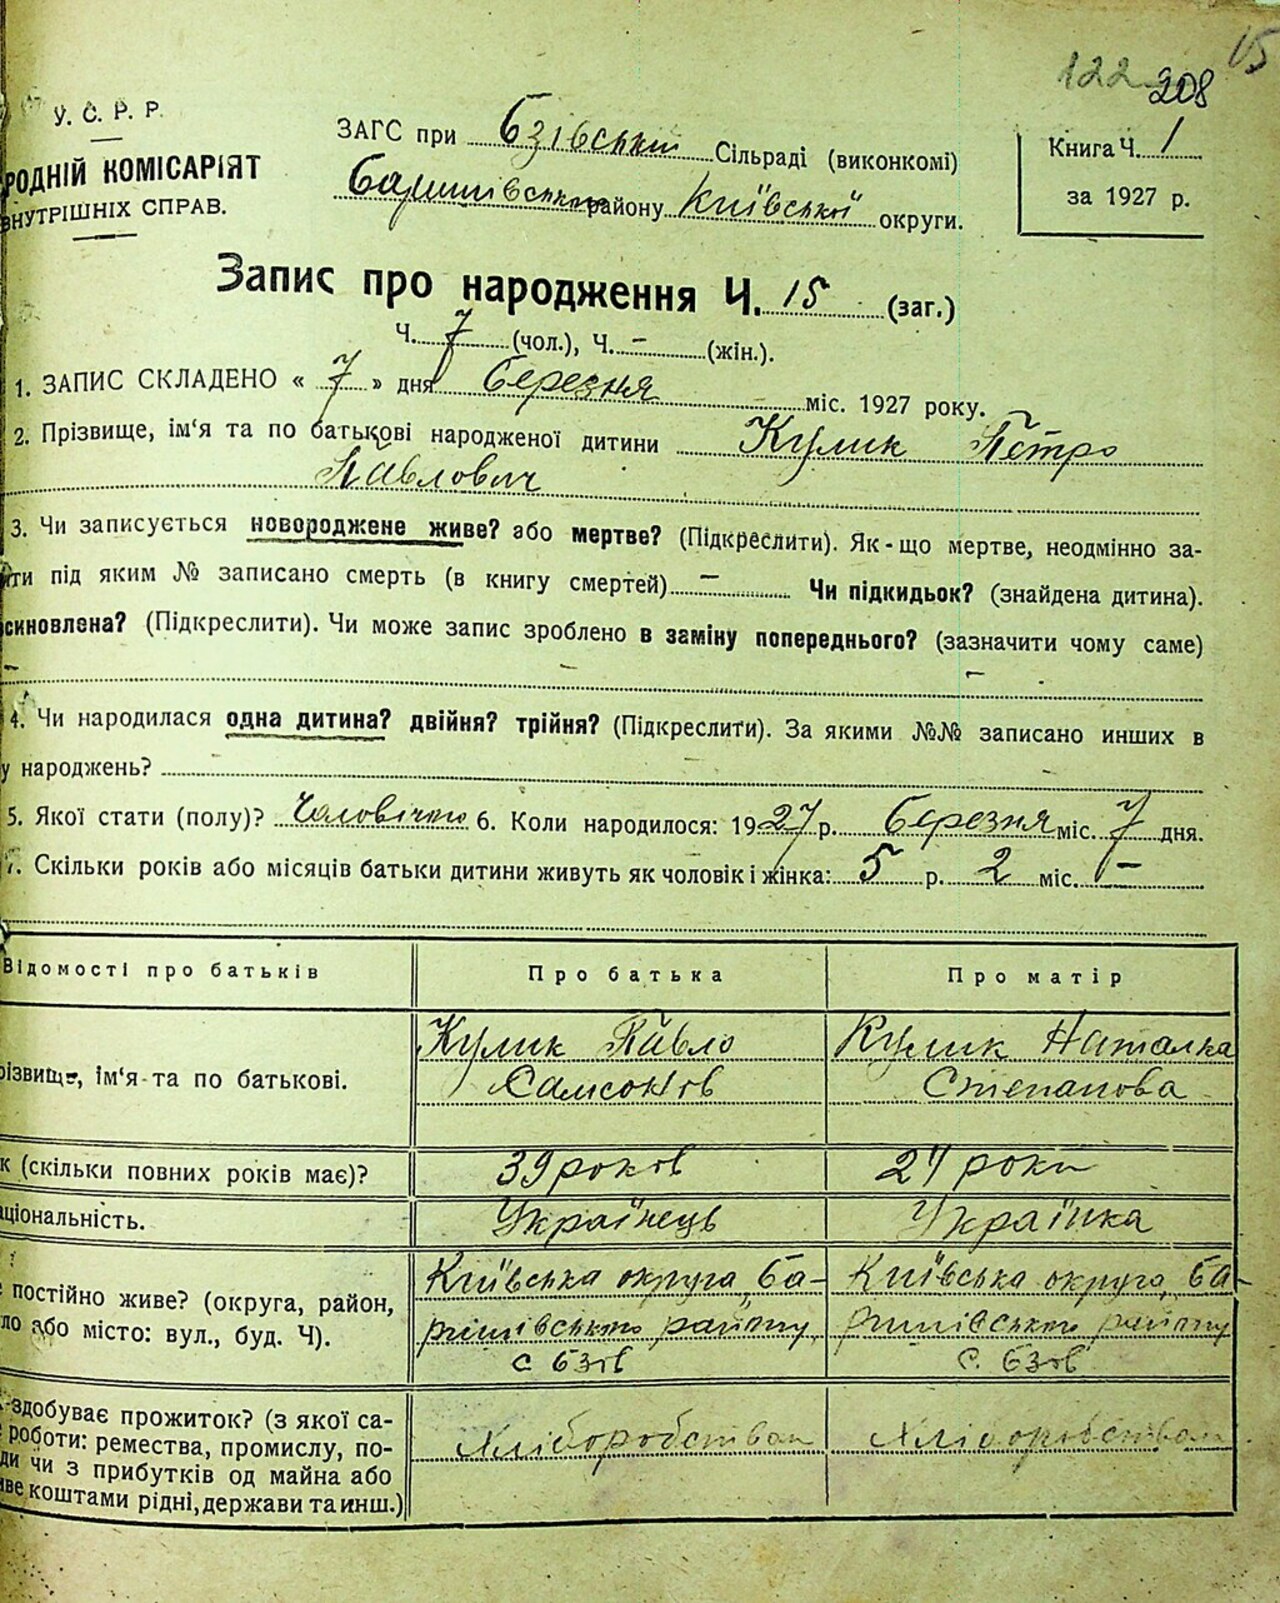 15
122 208
У. С. Р. Р.
РОДНІЙ КОМІСАРІЯТ
ВНУТРІШНІХ СПРАВ.
ЗАГС при Бзівській Сільраді (виконкомі)
Баришівського району Київської округи.
Книга Ч. 1
за 1927 р.
Запис про народження Ч. 15 (заг.)
Ч. 7 (чол.), Ч. – (жін.).
1. ЗАПИС СКЛАДЕНО « 7 » дня Березня міс. 1927 року.
2. Прізвище, ім‘я та по батькові народженої дитини Кулик Петро
Павлович
3. Чи записується новороджене живе? або мертве? (Підкреслити). Як-що мертве, неодмінно за-
ти під яким № записано смерть (в книгу смертей) – Чи підкидьок? (знайдена дитина).
синовлена? (Підкреслити). Чи може запис зроблено в заміну попереднього? (зазначити чому саме)
– – –
4. Чи народилася одна дитина? двійня? трійня? (Підкреслити). За якими №№ записано инших в
у народжень?
5. Якої стати (полу)? Чоловічого 6. Коли народилось: 1927 р. Березня міс. 7 дня.
7. Скільки років або місяців батьки дитини живуть як чоловік і жінка: 5 р. 2 міс. –
Відомості про батьків Про батька Про матір
різвище, ім‘я та по батькові. Кулик Павло Кулик Наталка
Самсонів Степанова
к (скільки повних років має)? 39 років 24 роки
аціональність. Українець Українка
е постійно живе? (округа, район, Київська округа, Ба- Київська округа, Ба-
ло або місто: вул., буд. Ч). ришівського району, ришівського району
с Бзів с. Бзів
здобуває прожиток? (з якої са-
роботи: ремества, промислу, по- Хліборобством Хліборобством
ди чи з прибутків од майна або
иве коштами рідні, держави та инш.)